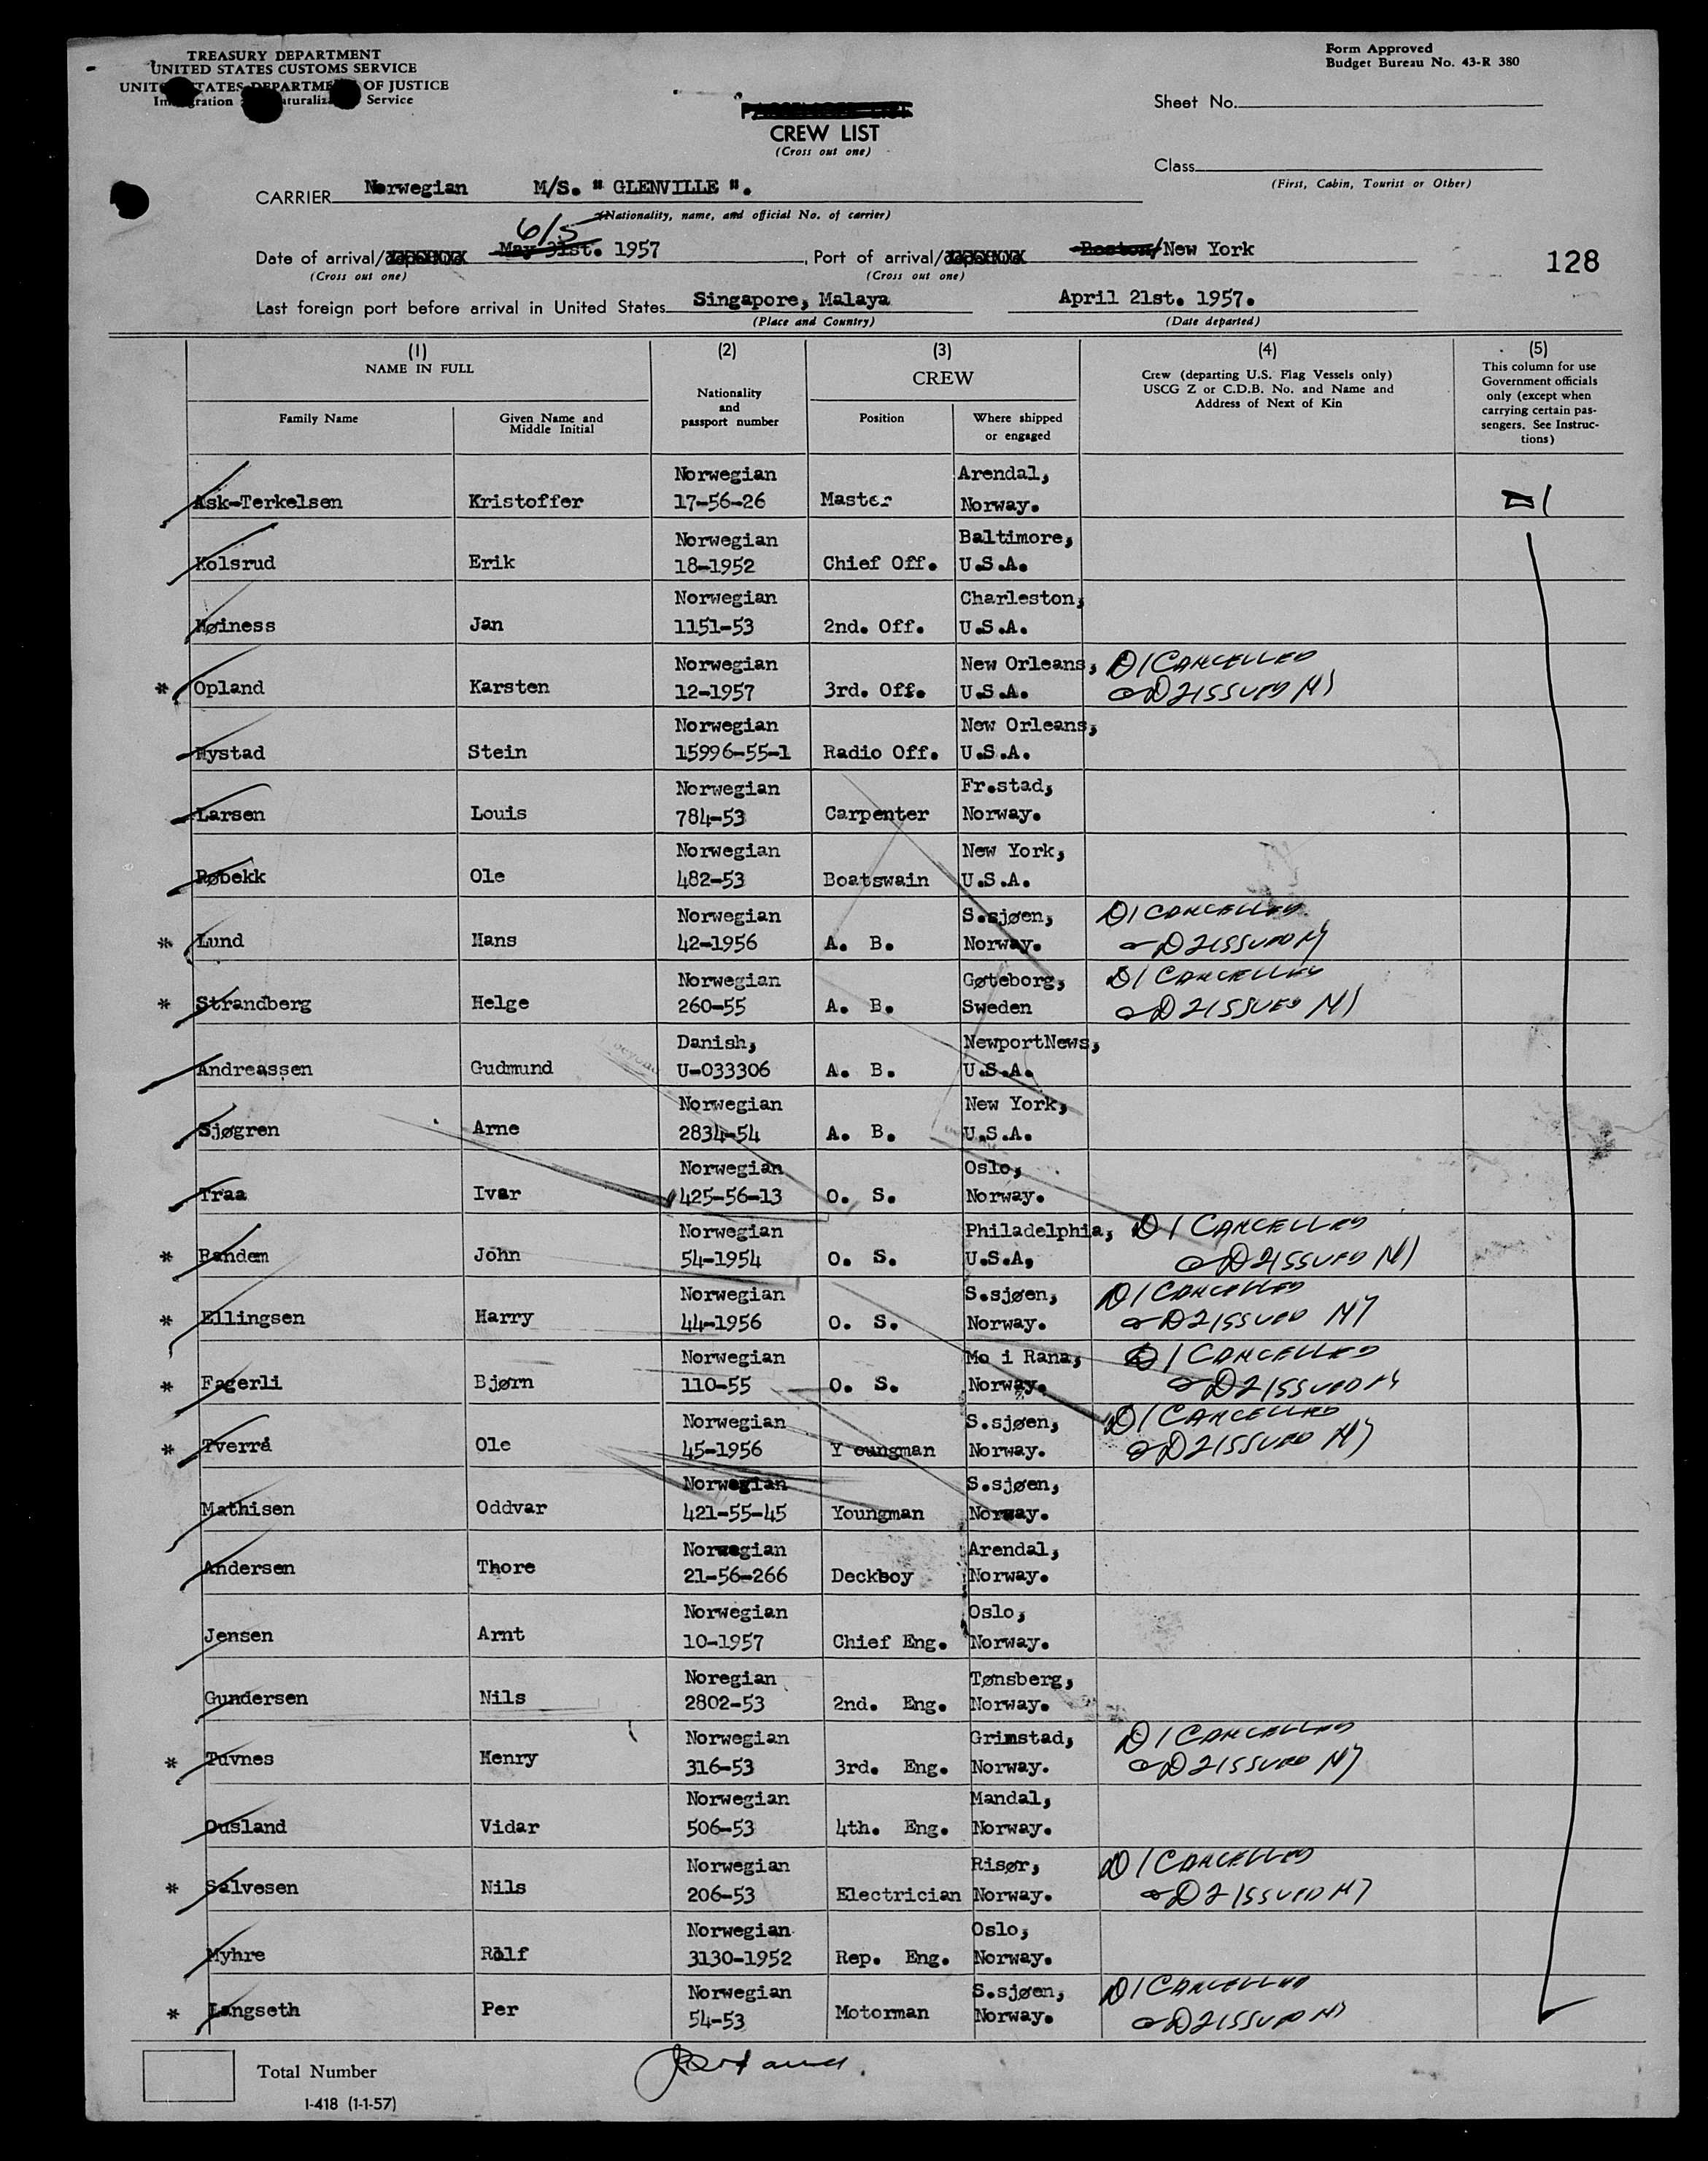 TREASURY DEPARTMENT
UNITED STATES CUSTOMS SERVICE
UNITED STATES DEPARTMENT OF JUSTICE
Immigration Naturalization Service
Form Approved
Budget Bureau No. 43-R 380
Sheet No.
PASSENGER LIST
CREW LIST
(Cross out one)
Class
(First, Cabin, Tourist or Other)
CARRIER Norwegian M/S. " GLENVILLE ".
(Nationality, name, and official No. of carrier)
6/5
Date of arrival/ May 31st. 1957, Port of arrival/ Boston/New York
(Cross out one) (Cross out one)
128
Last foreign port before arrival in United States Singapore, Malaya April 21st. 1957.
(Place and Country) (Date departed)
(1) (2) (3) (4) (5)
NAME IN FULL
Family Name
Given Name and Middle Initial
Nationality and passport number
CREW
Position
Where shipped or engaged
Crew (departing U.S. Flag Vessels only)
USCG Z or C.D.B. No. and Name and
Address of Next of Kin
This column for use
Government officials
only (except when
carrying certain pas-
sengers. See Instruc-
tions)
Norwegian Arendal,
Ask-Terkelsen Kristoffer 17-56-26 Master Norway.
Norwegian Baltimore,
Kolsrud Erik 18-1952 Chief Off. U.S.A.
Norwegian Charleston,
Møiness Jan 1151-53 2nd. Off. U.S.A.
Norwegian New Orleans, D1 CANCELLED
* Opland Karsten 12-1957 3rd. Off. U.S.A. D2 ISSUED NY
Norwegian New Orleans,
Hystad Stein 15996-55-1 Radio Off. U.S.A.
Norwegian Fr.stad,
Larsen Louis 784-53 Carpenter Norway.
Norwegian New York,
Røbekk Ole 482-53 Boatswain U.S.A.
Norwegian S.sjøen, D1 CANCELLED
* Lund Hans 42-1956 A. B. Norway. D2 ISSUED NY
Norwegian Gøteborg, D1 CANCELLED
* Strandberg Helge 260-55 A. B. Sweden D2 ISSUED NY
Danish, NewportNews,
Andreassen Gudmund U-033306 A. B. U.S.A.
Norwegian New York,
Sjøgren Arne 2834-54 A. B. U.S.A.
Norwegian Oslo,
Traa Ivar 425-56-13 O. S. Norway.
Norwegian Philadelphia, D1 CANCELLED
* Randem John 54-1954 O. S. U.S.A, D2 ISSUED NY
Norwegian S.sjøen, D1 CANCELLED
* Ellingsen Harry 44-1956 O. S. Norway. D2 ISSUED NY
Norwegian Mo i Rana, D1 CANCELLED
* Fagerli Bjørn 110-55 O. S. Norway. D2 ISSUED NY
Norwegian S.sjøen, D1 CANCELLED
* Tverrå Ole 45-1956 Y oungman Norway. D2 ISSUED NY
Norwegian S.sjøen,
Mathisen Oddvar 421-55-45 Youngman Norway.
Norwegian Arendal,
Andersen Thore 21-56-266 Deckboy Norway.
Norwegian Oslo,
Jensen Arnt 10-1957 Chief Eng. Norway.
Noregian Tønsberg,
Gundersen Nils 2802-53 2nd. Eng. Norway.
Norwegian Grimstad, D1 CANCELLED
* Tuvnes Henry 316-53 3rd. Eng. Norway. D2 ISSUED NY
Norwegian Mandal,
Ousland Vidar 506-53 4th. Eng. Norway.
Norwegian Risør, D1 CANCELLED
* Salvesen Nils 206-53 Electrician Norway. D2 ISSUED NY
Norwegian Oslo,
Myhre Rolf 3130-1952 Rep. Eng. Norway.
Norwegian S.sjøen, D1 CANCELLED
* Langseth Per 54-53 Motorman Norway. D2 ISSUED NY
Total Number
I-418 (1-1-57)